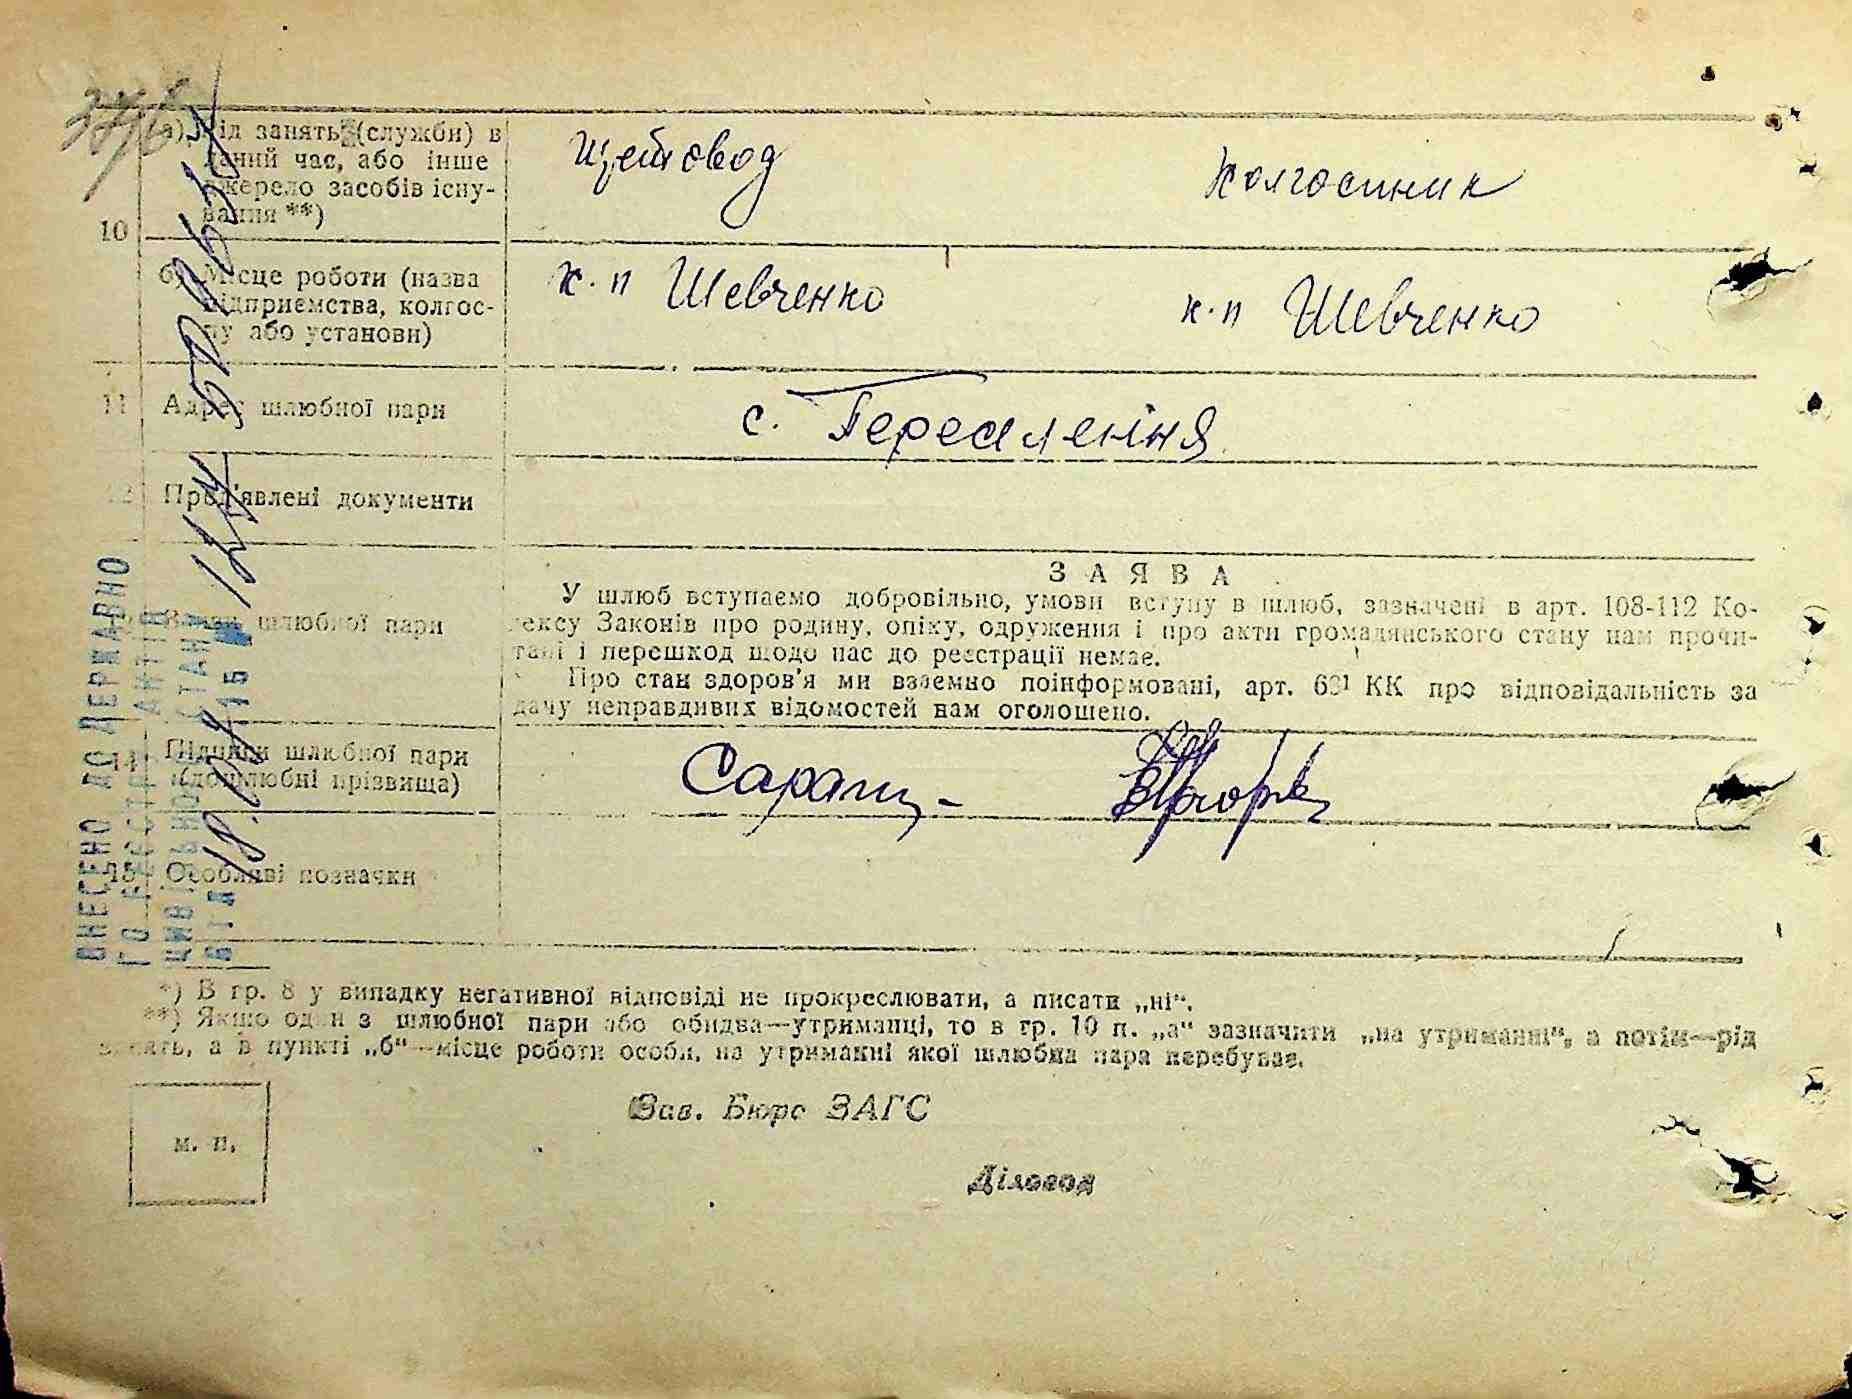 а) Рід занять (служби) в
даний час, або інше
джерело засобів існу-
вання **)
Щетовод
Колгоспник
10
б) Місце роботи (назва
підприємства, колгос-
пу або установи)
к.п Шевченко
к.п Шевченко
11 Адрес шлюбної пари
с. Переселення
12 Пред'явлені документи
ЗАЯВА
шлюбної пари
У шлюб вступаємо добровільно, умови вступу в шлюб, зазначені в арт. 108-112 Ко-
дексу Законів про родину, опіку, одруження і про акти громадянського стану нам прочи-
тані і перешкод щодо нас до реєстрації немає.
Про стан здоров'я ми взаємно поінформовані, арт. КК про відповідальність за
дачу неправдивих відомостей нам оголошено.
14 Підписи шлюбної пари
(дошлюбні прізвища)
15 Особливі позначки
ВНЕСЕНО ДО ДЕРЖАВНО
ГО РЕЄСТРУ АКТІВ
ЦИВІЛЬНОГО СТАНУ
*) В гр. 8 у випадку негативної відповіді не прокреслювати, а писати „ні“.
**) Якщо один з шлюбної пари або обидва—утриманці, то в гр. 10 п. „а“ зазначити „на утриманні“, а потім—рід
занять, а в пункті „б“—місце роботи особи, на утриманні якої шлюбна пара перебуває.
Зав. Бюро ЗАГС
м. п.
Діловод